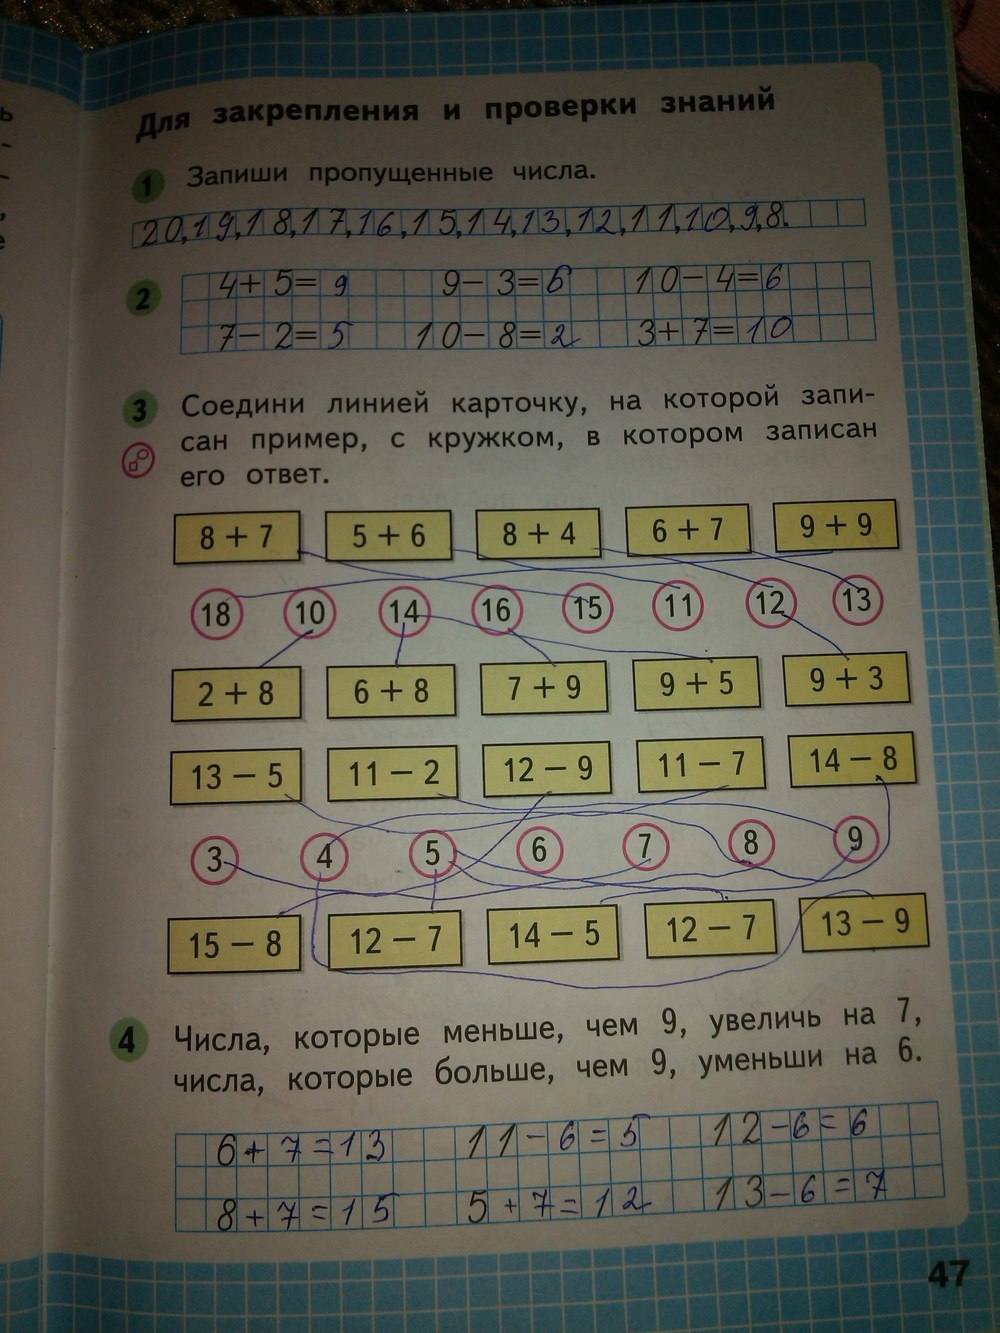 Для закрепления и проверки знаний
1 Запиши пропущенные числа.
20,19,18,17,16,15,14,13,12,11,10,9,8.
2
4+5=9 9-3=6 10-4=6
7-2=5 10-8=2 3+7=10
3 Соедини линией карточку, на которой запи-
сан пример, с кружком, в котором записан
его ответ.
8 + 7 5 + 6 8 + 4 6 + 7 9 + 9
18 10 14 16 15 11 12 13
2 + 8 6 + 8 7 + 9 9 + 5 9 + 3
13 − 5 11 − 2 12 − 9 11 − 7 14 − 8
3 4 5 6 7 8 9
15 − 8 12 − 7 14 − 5 12 − 7 13 − 9
4 Числа, которые меньше, чем 9, увеличь на 7,
числа, которые больше, чем 9, уменьши на 6.
6+7=13 11-6=5 12-6=6
8+7=15 5+7=12 13-6=7
47